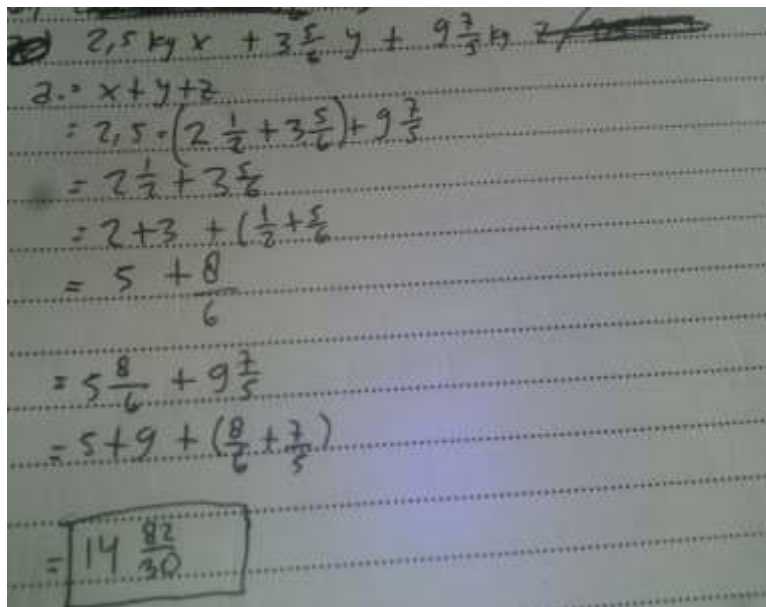 2,5 kg x + 3 5/6 y + 9 7/5 kg z /
a. = x + y + z
= 2,5 = (2 1/2 + 3 5/6) + 9 7/5
= 2 1/2 + 3 5/6
= 2 + 3 + (1/2 + 5/6
= 5 + 8/6
= 5 8/6 + 9 7/5
= 5 + 9 + (8/6 + 7/5)
= 14 82/30